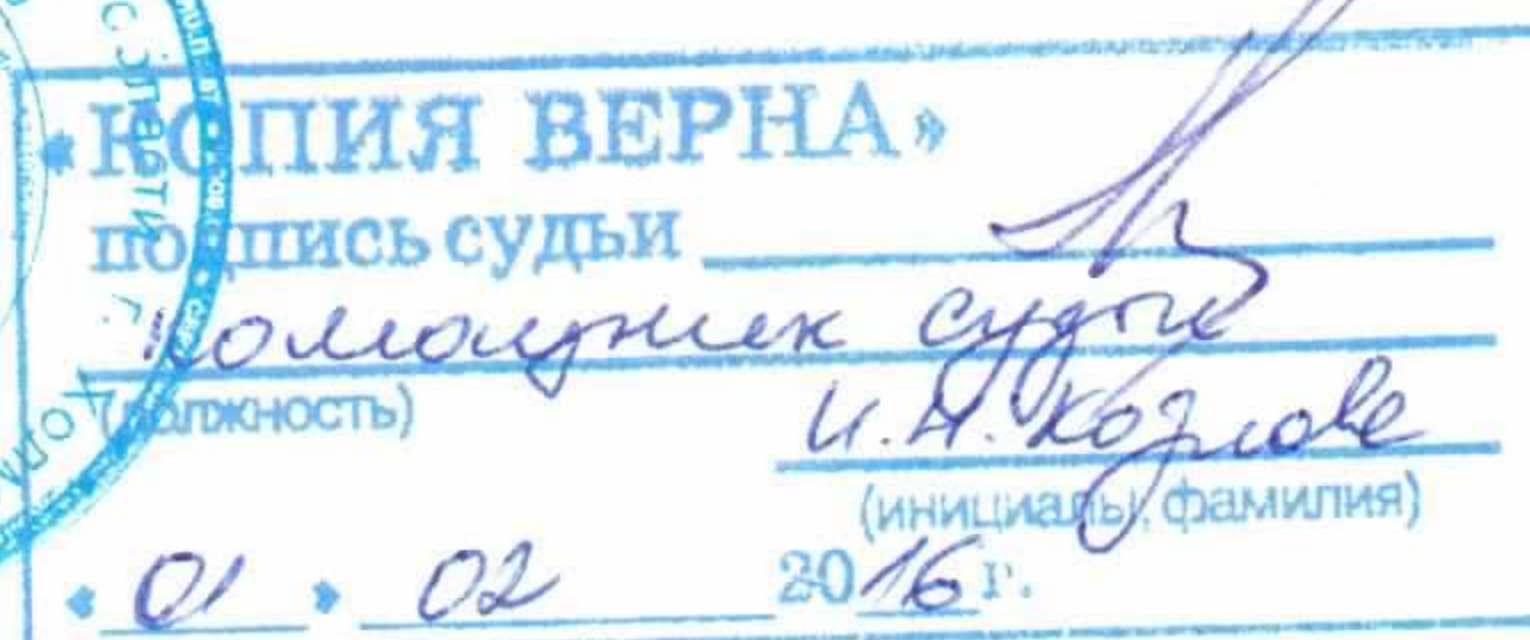 «КОПИЯ ВЕРНА»
подпись судьи
помощник судьи
(должность)
И.Н. Козлова
(инициалы, фамилия)
«01» 02 2016 г.